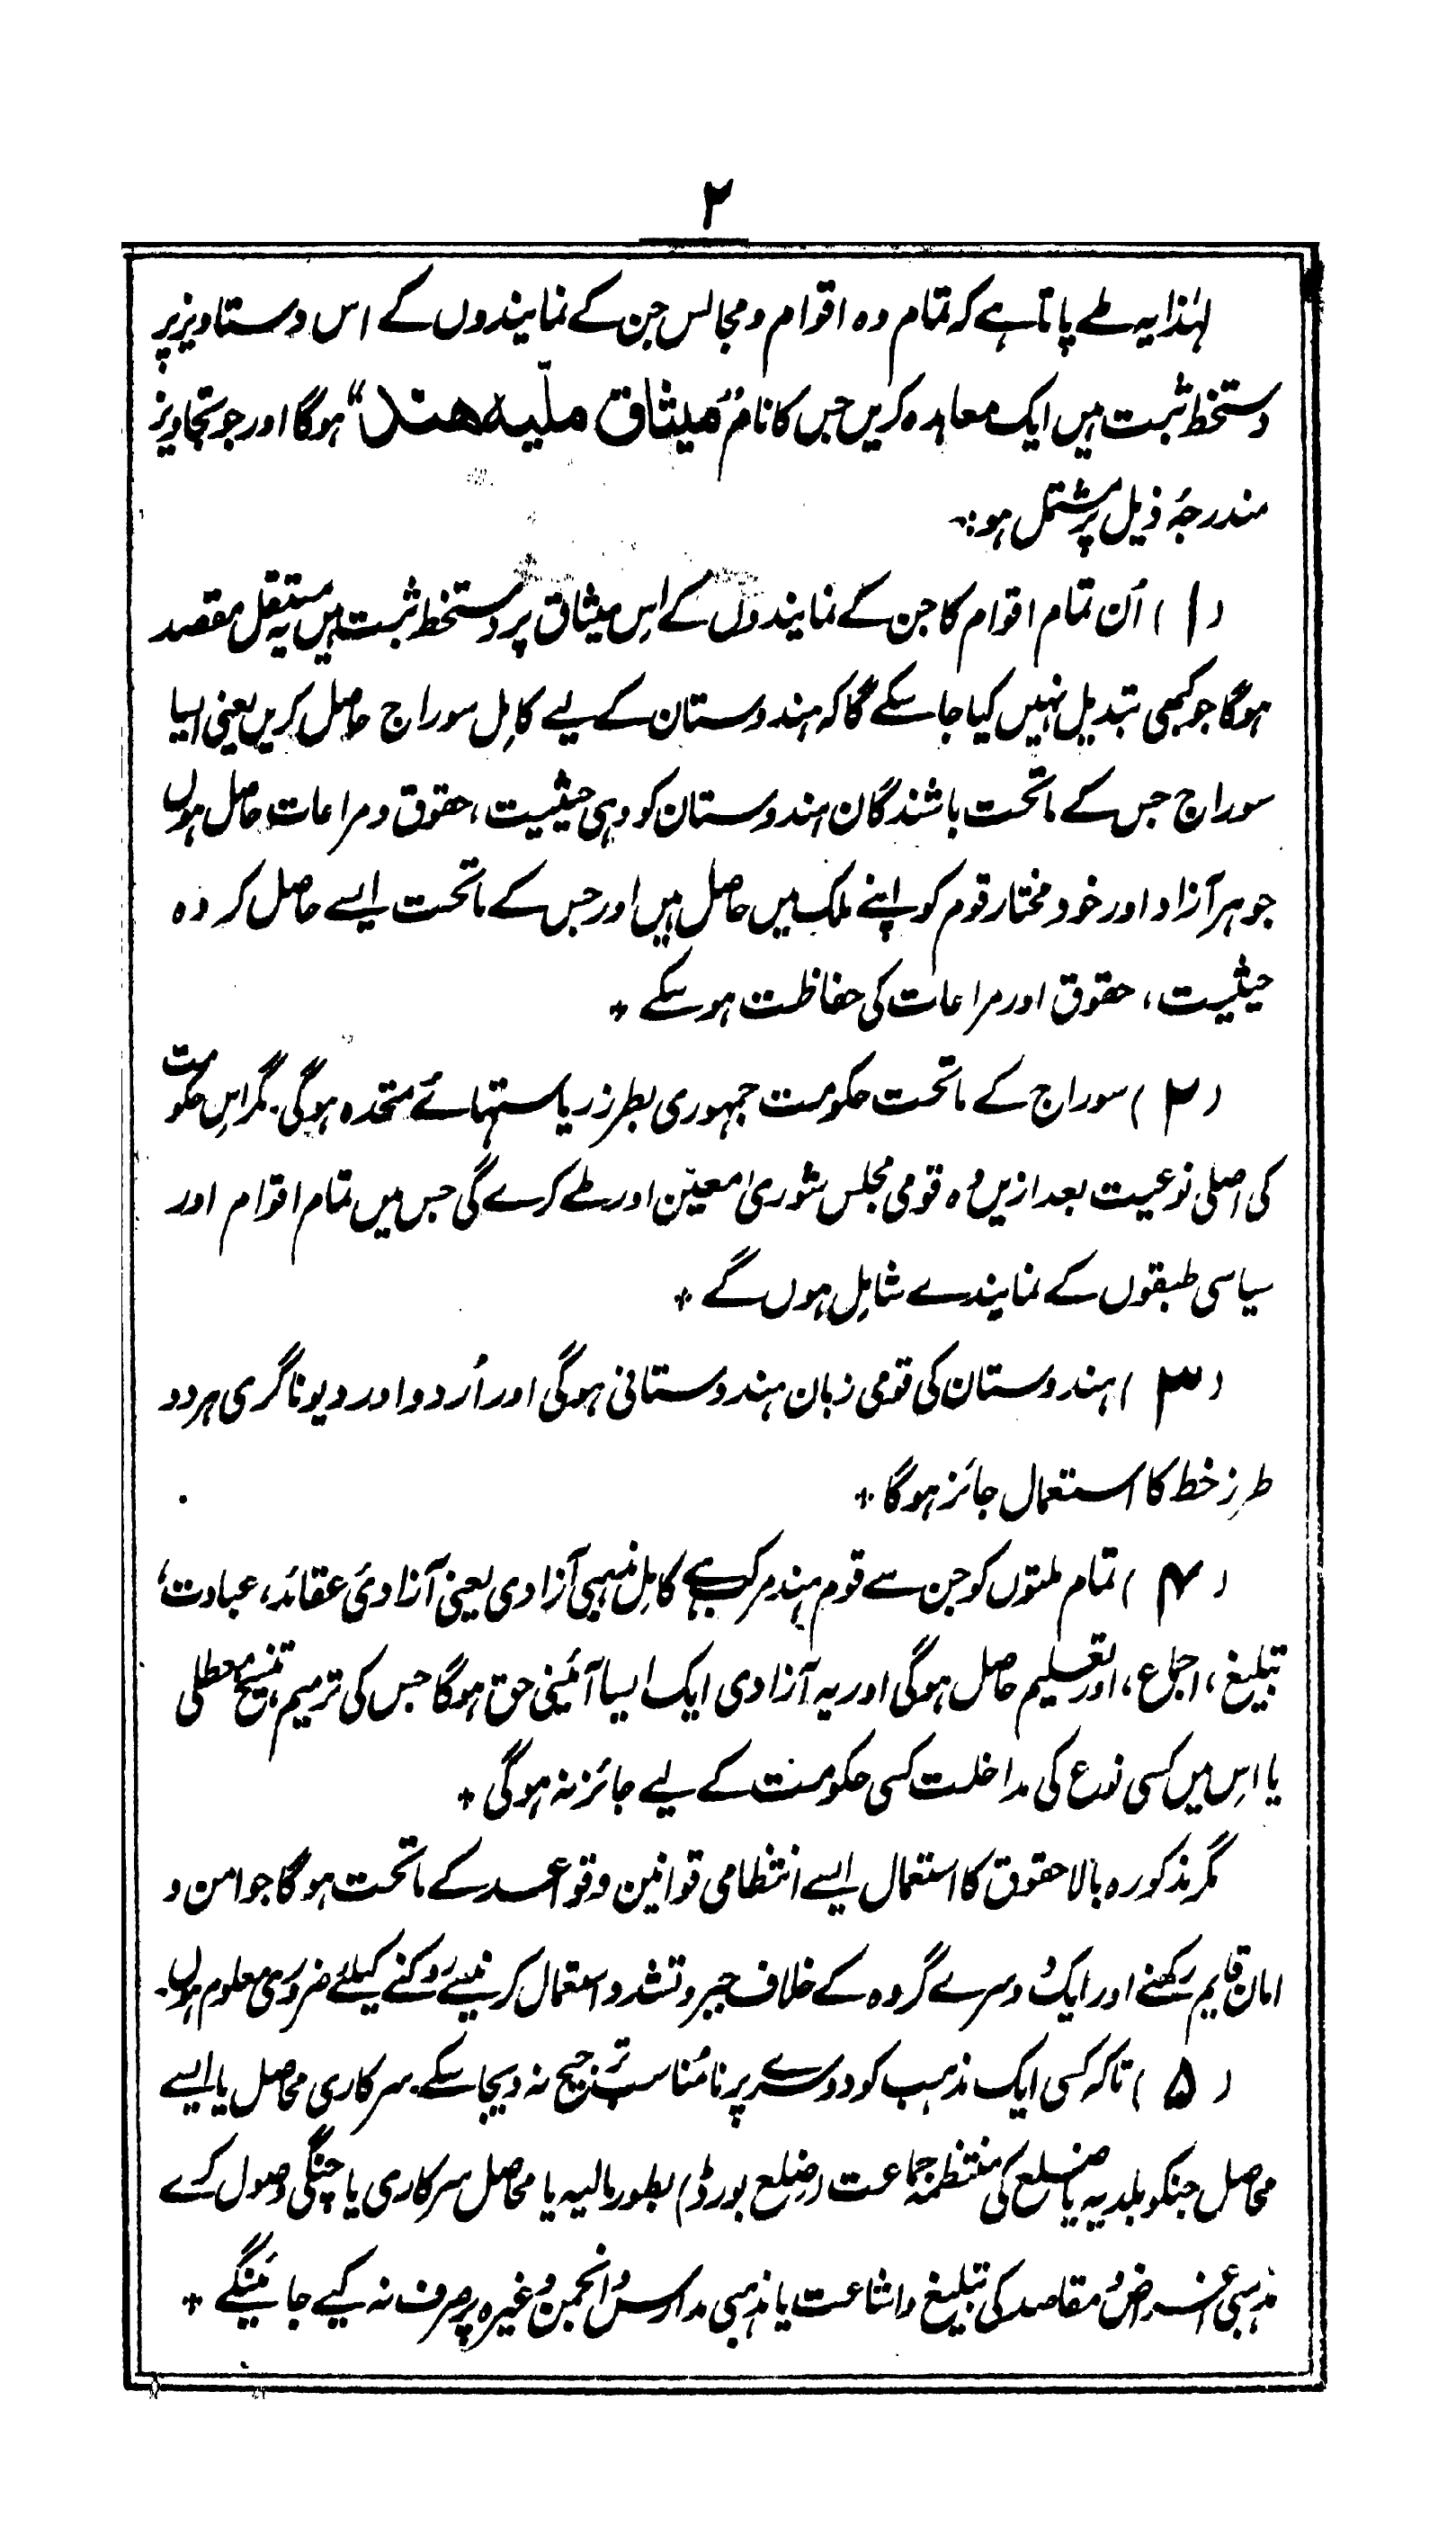 ۲
لہٰذا یہ طے پاتا ہے کہ تمام وہ اقوام و مجالس جن کے نمایندوں کے اس دستاویز پر
دستخط ثبت ہیں ایک معاہدہ کریں جس کا نام "میثاق ملّیہ ھند" ہوگا اور جو تجاویز
مندرجۂ ذیل پر مشتمل ہو:۔
(۱) اُن تمام اقوام کا جن کے نمایندوں کے اِس میثاق پر دستخط ثبت ہیں یہ مستقل مقصد
ہوگا جو کبھی تبدیل نہیں کیا جا سکے گا کہ ہندوستان کے لیے کامِل سوراج حاصل کریں یعنی ایسا
سوراج جس کے ماتحت باشندگان ہندوستان کو وہی حیثیت، حقوق و مراعات حاصل ہوں
جو ہر آزاد اور خود مختار قوم کو اپنے ملک میں حاصل ہیں اور جس کے ماتحت ایسے حاصل کر دہ
حیثیت، حقوق اور مراعات کی حفاظت ہو سکے +
(۲) سوراج کے ماتحت حکومت جمہوری بطرز ریاستہائے متحدہ ہوگی۔ مگر اِس حکومت
کی اصلی نوعیت بعد ازیں وُہ قومی مجلس شوریٰ معیّن اور طے کرے گی جس میں تمام اقوام اور
سیاسی طبقوں کے نمایندے شامِل ہوں گے +
(۳) ہندوستان کی قومی زبان ہندوستانی ہوگی اور اُردو اور دیوناگری ہر دو
طرزِ خط کا استعمال جائز ہوگا +
(۴) تمام ملتوں کو جن سے قوم ہند مرکب ہے کامِل مذہبی آزادی یعنی آزادئ عقائد، عبادت،
تبلیغ، اجماع، اور تعلیم حاصل ہوگی اور یہ آزادی ایک ایسا آئینی حق ہوگا جس کی ترمیم، تنسیخ، معطلی
یا اِس میں کسی نوع کی مداخلت کسی حکومت کے لیے جائز نہ ہوگی +
مگر مذکورہ بالا حقوق کا استعمال ایسے انتظامی قوانین و قواعد کے ماتحت ہوگا جو امن و
امان قایم رکھنے اور ایک دوسرے گروہ کے خلاف جبر و تشدد استعمال کرنیسے روکنے کیلئے ضروری معلوم ہوں۔
(۵) تاکہ کسی ایک مذہب کو دوسرے پر نامُناسب ترجیح نہ دیجا سکے۔ سرکاری محاصل یا ایسے
محاصل جنکو بلدیہ یا ضلع کی منتظمہ جماعت (ضِلع بورڈ) بطور مالیہ یا محاصل سرکاری یا چنگی وصول کرے
مذہبی اغراض و مقاصد کی تبلیغ و اشاعت یا مذہبی مدارس و انجمن وغیرہ پر صرف نہ کیے جائینگے +